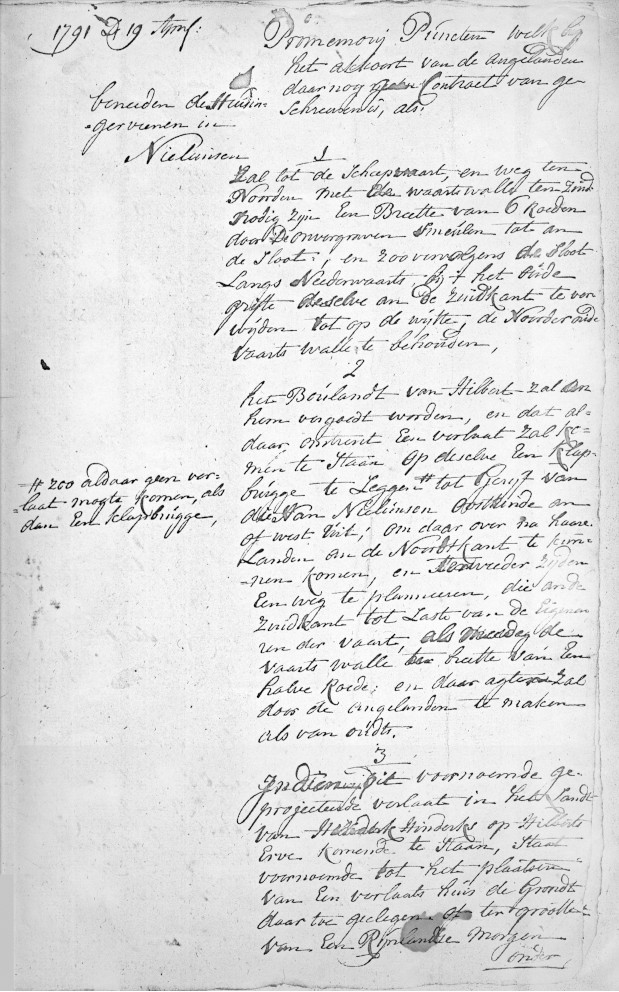 1791 D 19 April:
Promemorij Puncten welk by
het akkoort van de angelanden
daar nog geen Contract van ge
Schreven is, als.
beneeden de Huisin-
gervenen in
Nielunsen
1
Zal tot de Scheepvaart, en weg ten
Noorden met de vaartswalle ten Zuid
Nodig zijn Een Breette van 6 Roeden
door De onvergraven tot an
de Sloot; en zoo vervolgens de Sloot
Langs Neederwaarts bij het Oúde
grifte deselve an De Zuidkant te ver
wijden tot op de wijtte, de Noorder oude
Vaarts walle te behouden,
2
het Boúlandt van Hilbert Zal
hem vergoedt worden, en dat al-
daar omtrent Een verlaat Zal ko-
men te Staan op deselve Een Klap
brúgge te Leggen # tot gerijf van
die Van Nielunsen Oosteinde an
of west Uit, om daar over na haare
Landen an de Noordtkant te kún-
-nen komen, en weeder zijden
Een weg te planneeren, die an de
Zuidkant tot Laste van de Eigena
ren der vaart, als meede de
vaarts walle ter breette van Een
halve Roede; en daar agter Zal
door de angelanden te maken
als van oúdts.
# zoo aldaar geen ver-
-laat mogte komen, als
dan Een klapbrúgge,
3
Indien dit voornoemde ge-
projecteerde verlaat in het Landt
van Hinderk Hinderks op Hilberts
Erve komende te Staan, Staat
voornoemde tot het plaatsen
van Een verlaats húis de Grondt
daar toe gelegen of ter grootte
van Een Rijnlandse Morgen
onder